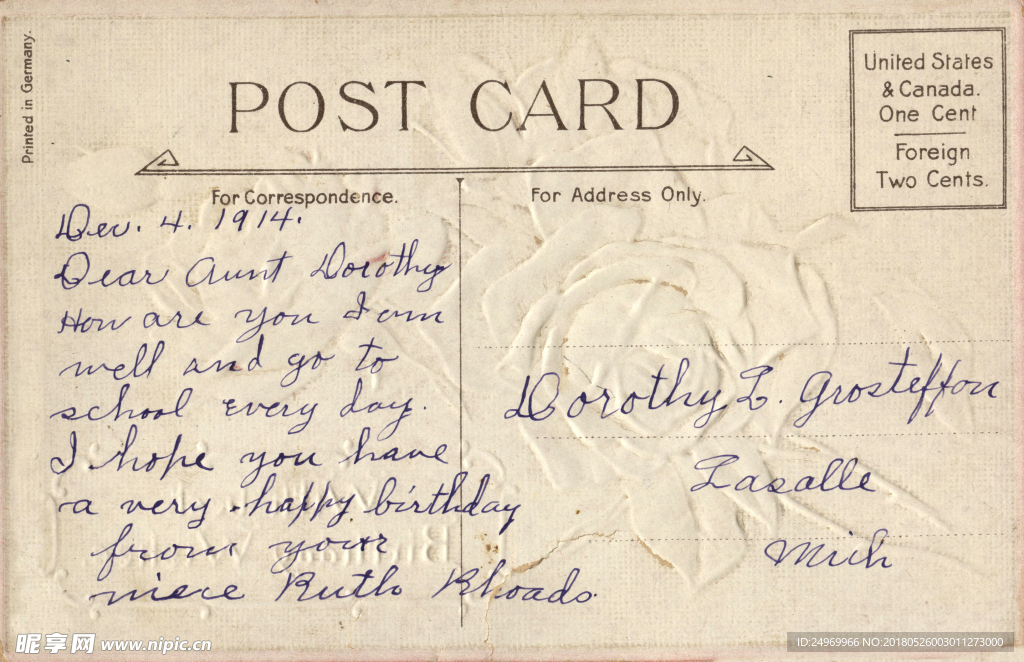 Printed in Germany.
POST CARD
United States
& Canada.
One Cent
Foreign
Two Cents.
For Correspondence.
For Address Only.
Dec. 4. 1914.
Dear Aunt Dorothy
How are you I am
well and go to
school every day.
I hope you have
a very happy birthday
from your
niece Ruth Rhoads.
Dorothy L. Grosteffon
Lasalle
Mich
昵享网 www.nipic.cn
ID:24969966 NO:20180526003011273000